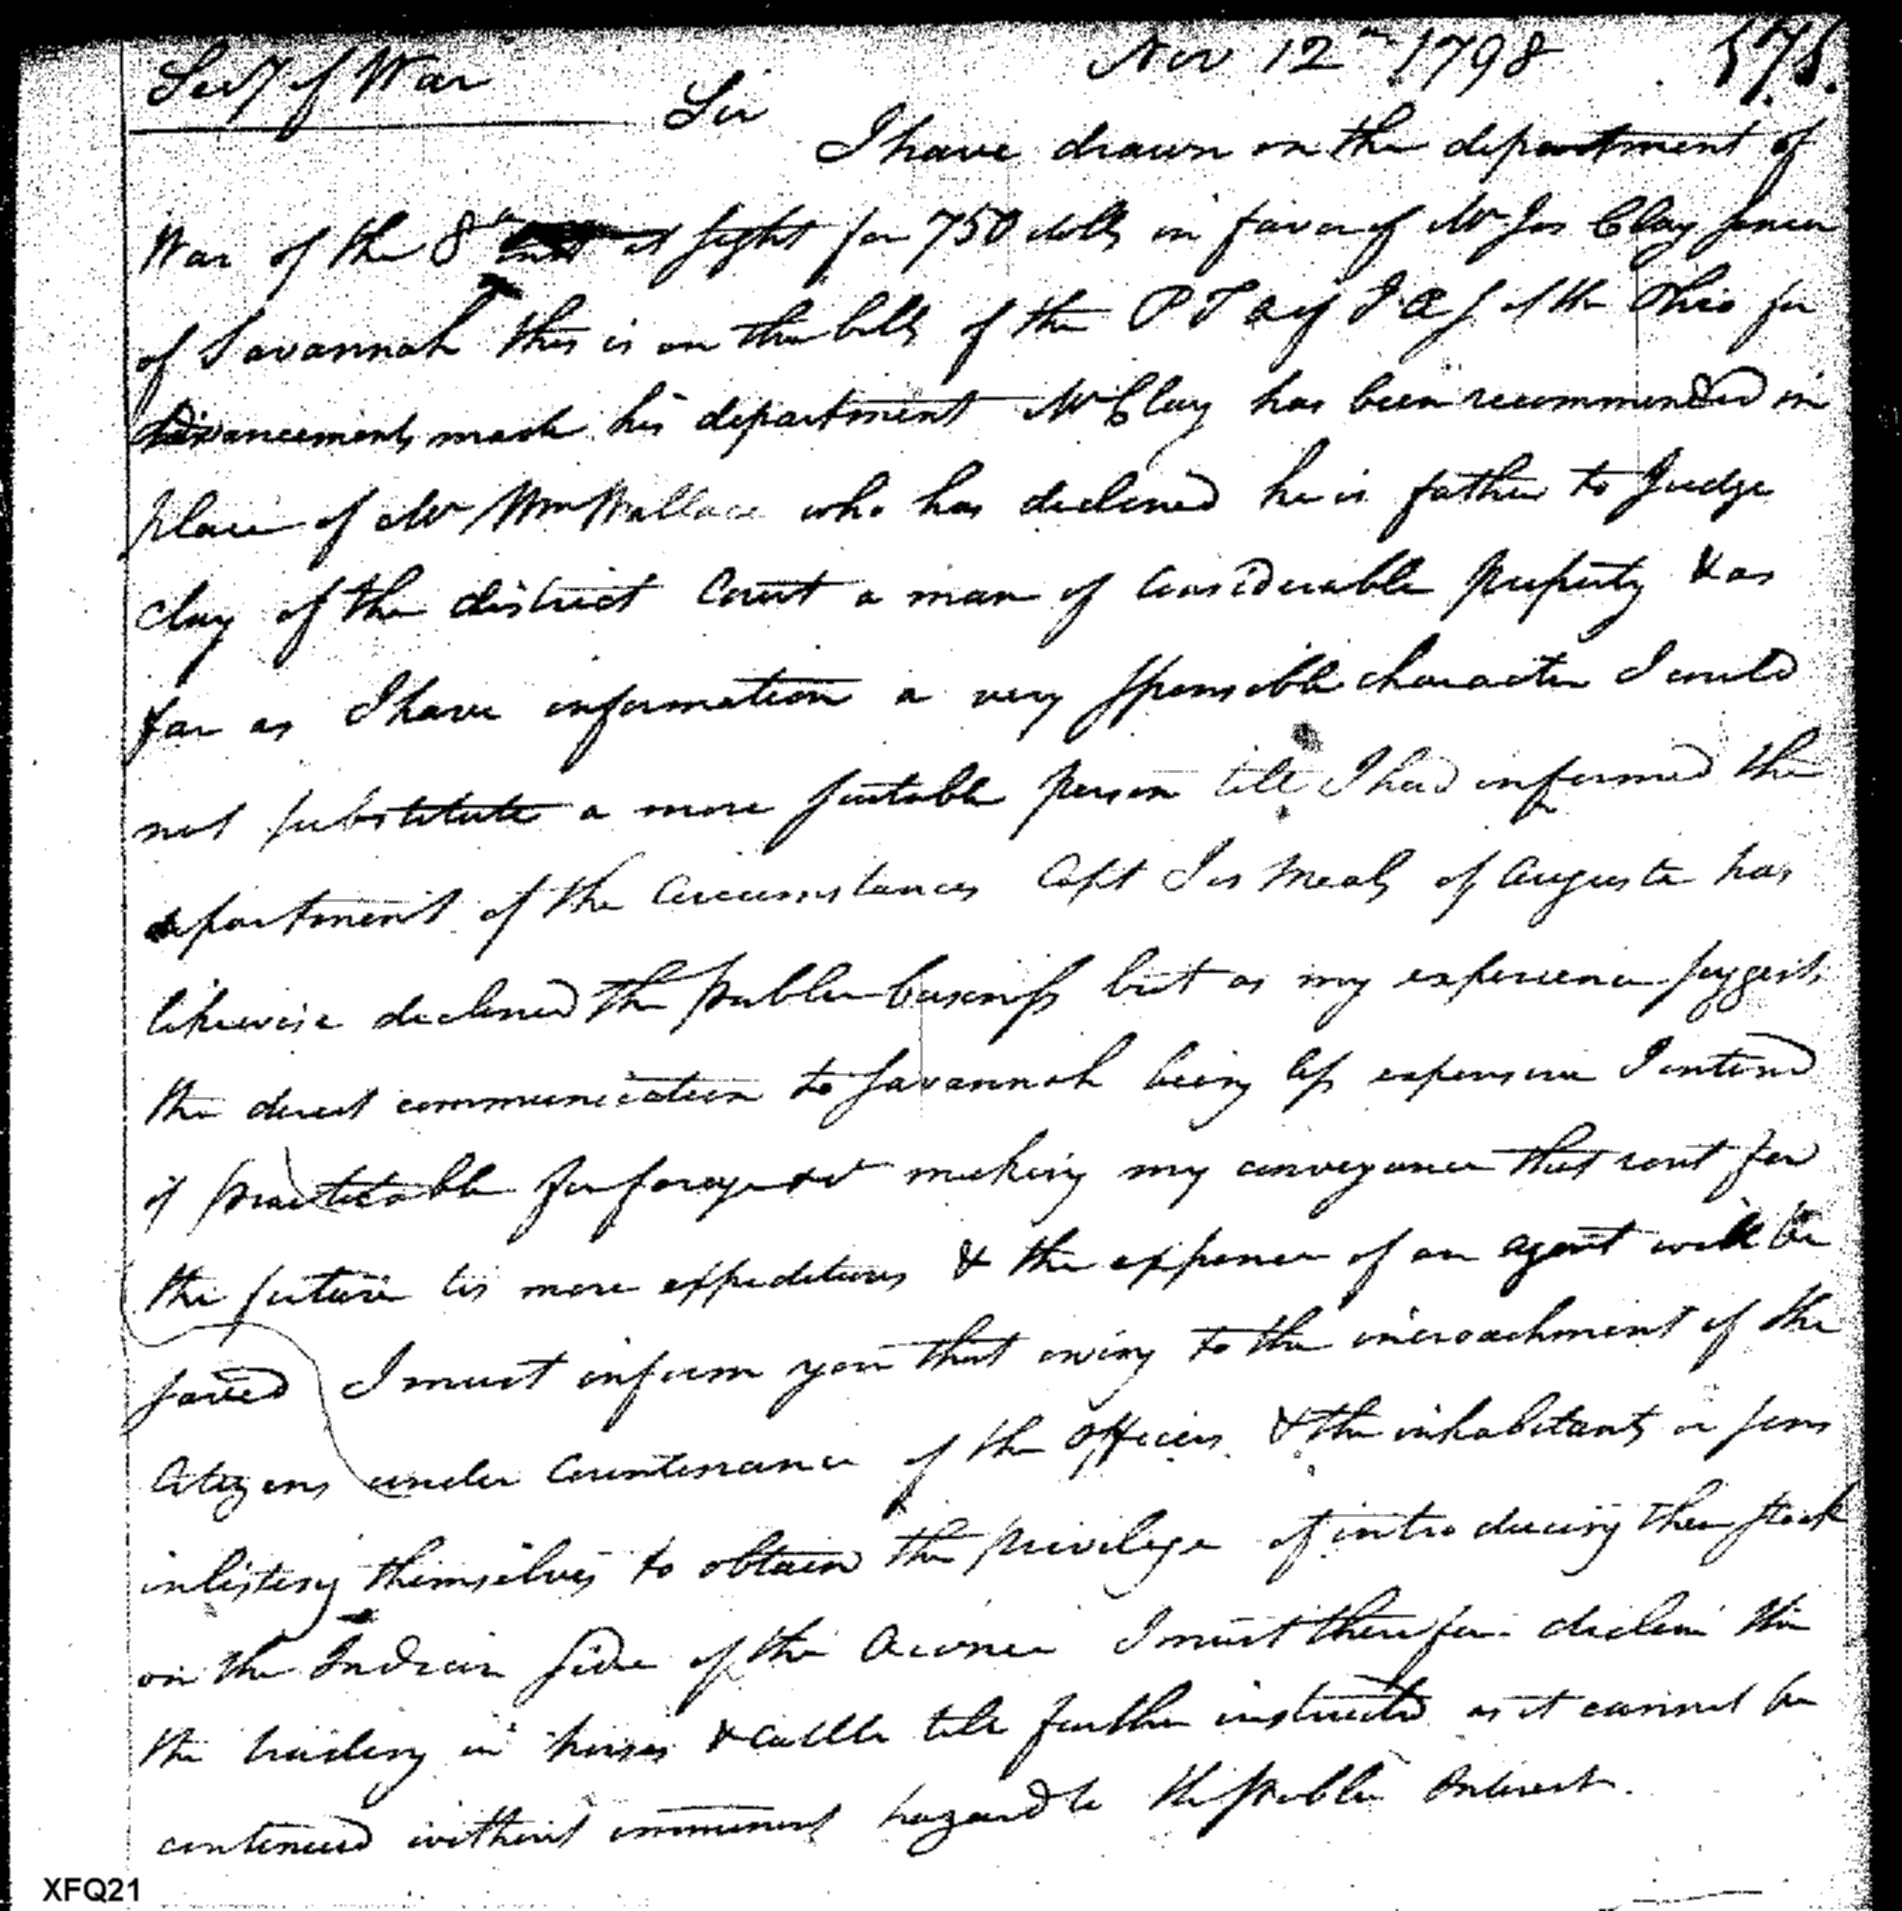 Secy of War
Nov 12th 1798
575.
Sir
I have drawn on the department of
War of the 8th inst at sight for 750 dolls in favor of Mr Jos Clay senior
of Savannah this is on the bills of the of the Ohio for
advancements made his department Mr Clay has been recommended in
place of Mr Wm Wallace who has declined he is father to Judge
Clay of the district Court a man of considerable property & as
far as I have information a very sponsible character I could
not substitute a more suitable person till I had informed the
department of the Circumstances Capt Jas Meals of Augusta has
likewise declined the public business but as my experience suggests
the direct communication to Savannah being less expensive I intend
if practicable making my conveyance that rout for
the future tis more expeditious & the expence of an agent will be
saved I must inform you that owing to the incroachment of the
Citizens under Countenance of the officers & the inhabitants or sons
inlisting themselves to obtain the privilege of introducing their stock
on the Indian side of the Oconee I must therefore decline the
the trading in horses & cattle till further instructed as it cannot be
continued without imminent hazard to the public Interest.
XFQ21